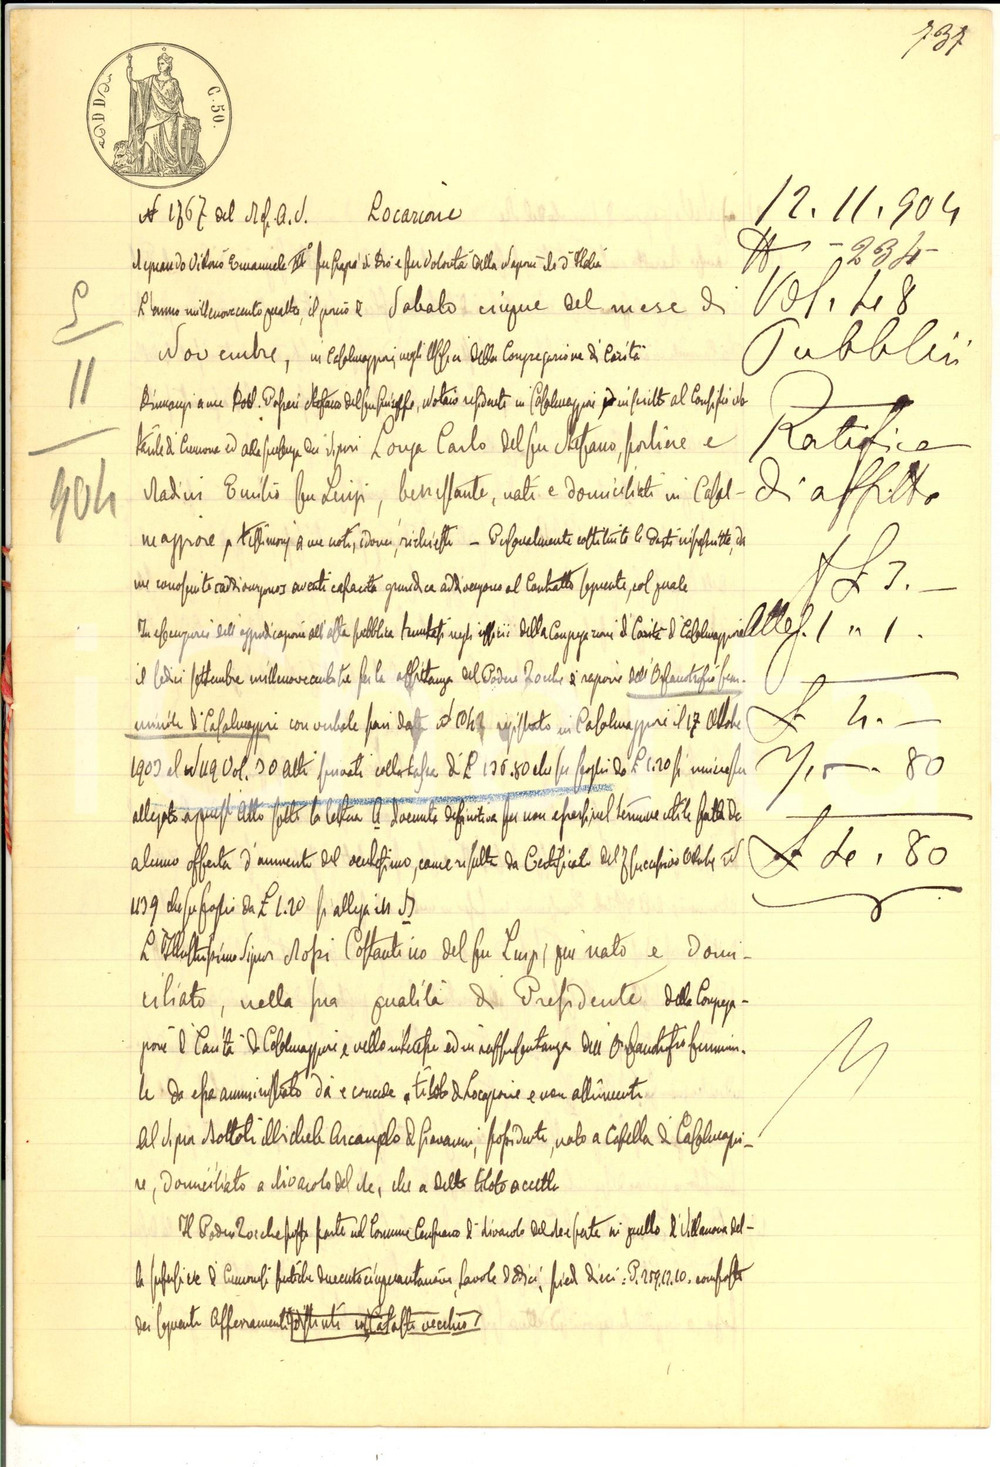 737
C. 50.
N 1767 del Locazione
Regnando Vittorio Emanuele III° per grazia di Dio e per volontà della Nazione Re d'Italia
L'anno millenovecento quattro, il giorno di Sabato cinque del mese di
Novembre, in Casalmaggiore, negli Uffici della Congregazione di Carità
Dinnanzi a me Dott. Stefano del fu Giuseppe, Notaio residente in Casalmaggiore, inscritto al Consiglio No
tarile di Cremona ed alla presenza dei signori Longa Carlo del fu Stefano, portiere e
Madini Emilio fu Luigi, benestante, nati e domiciliati in Casal-
maggiore, testimoni a me noti, idonei, richiesti – Personalmente costituite le Parti infrascritte, da
me conosciute ed aventi capacità giuridica addivengono al Contratto seguente, col quale
In esecuzione dell'aggiudicazione all'asta pubblica tenutasi negli uffici della Congregazione di Carità di Casalmaggiore
il sedici settembre millenovecentotre per la affittanza del Podere Zocche di ragione dell'Orfanotrofio fem-
minile di Casalmaggiore con verbale pari data registrato in Casalmaggiore il 17 Ottobre
1903 al N 119 Vol. 30 Atti privati colla tassa di £ 136.80 che su fogli da £ 1.20 si unisce
allegato a quest'atto sotto la lettera A divenuta definitiva per non essersi nel termine utile fatta da
alcuno offerta d'aumento del ventesimo, come risulta da Certificato del 7 successivo Ottobre N
1139 che su foglio da £ 1.20 si allega in B
L'Illustrissimo Signor Rossi Costantino del fu Luigi, qui nato e domi-
ciliato, nella sua qualità di Presidente della Congrega-
zione di Carità di Casalmaggiore e nello interesse ed in rappresentanza dell'Orfanotrofio femmini-
le da essa amministrato dà e concede a titolo di Locazione e non altrimenti
Al Signor Bottoli Michele Arcangelo di Giovanni, possidente, nato a Casella di Casalmaggio-
re, domiciliato a Rivarolo del Re, che a detto titolo accetta
Il Podere Zocche posto parte nel Comune Censuario di Rivarolo del Re e parte in quello di Villanova del-
la superficie di Cremonesi pertiche duecentocinquantanove, tavole dodici, piedi dieci: P. 259.12.10. composto
dei seguenti Appezzamenti distinti in Catasto vecchio
5
11
904
12. 11. 904
N - 234 -
Vol. 48
Pubblici
Ratifica
di affitto
£ 3. –
Alleg. 1 " 1.
£ 4. –
80
£ 4. 80